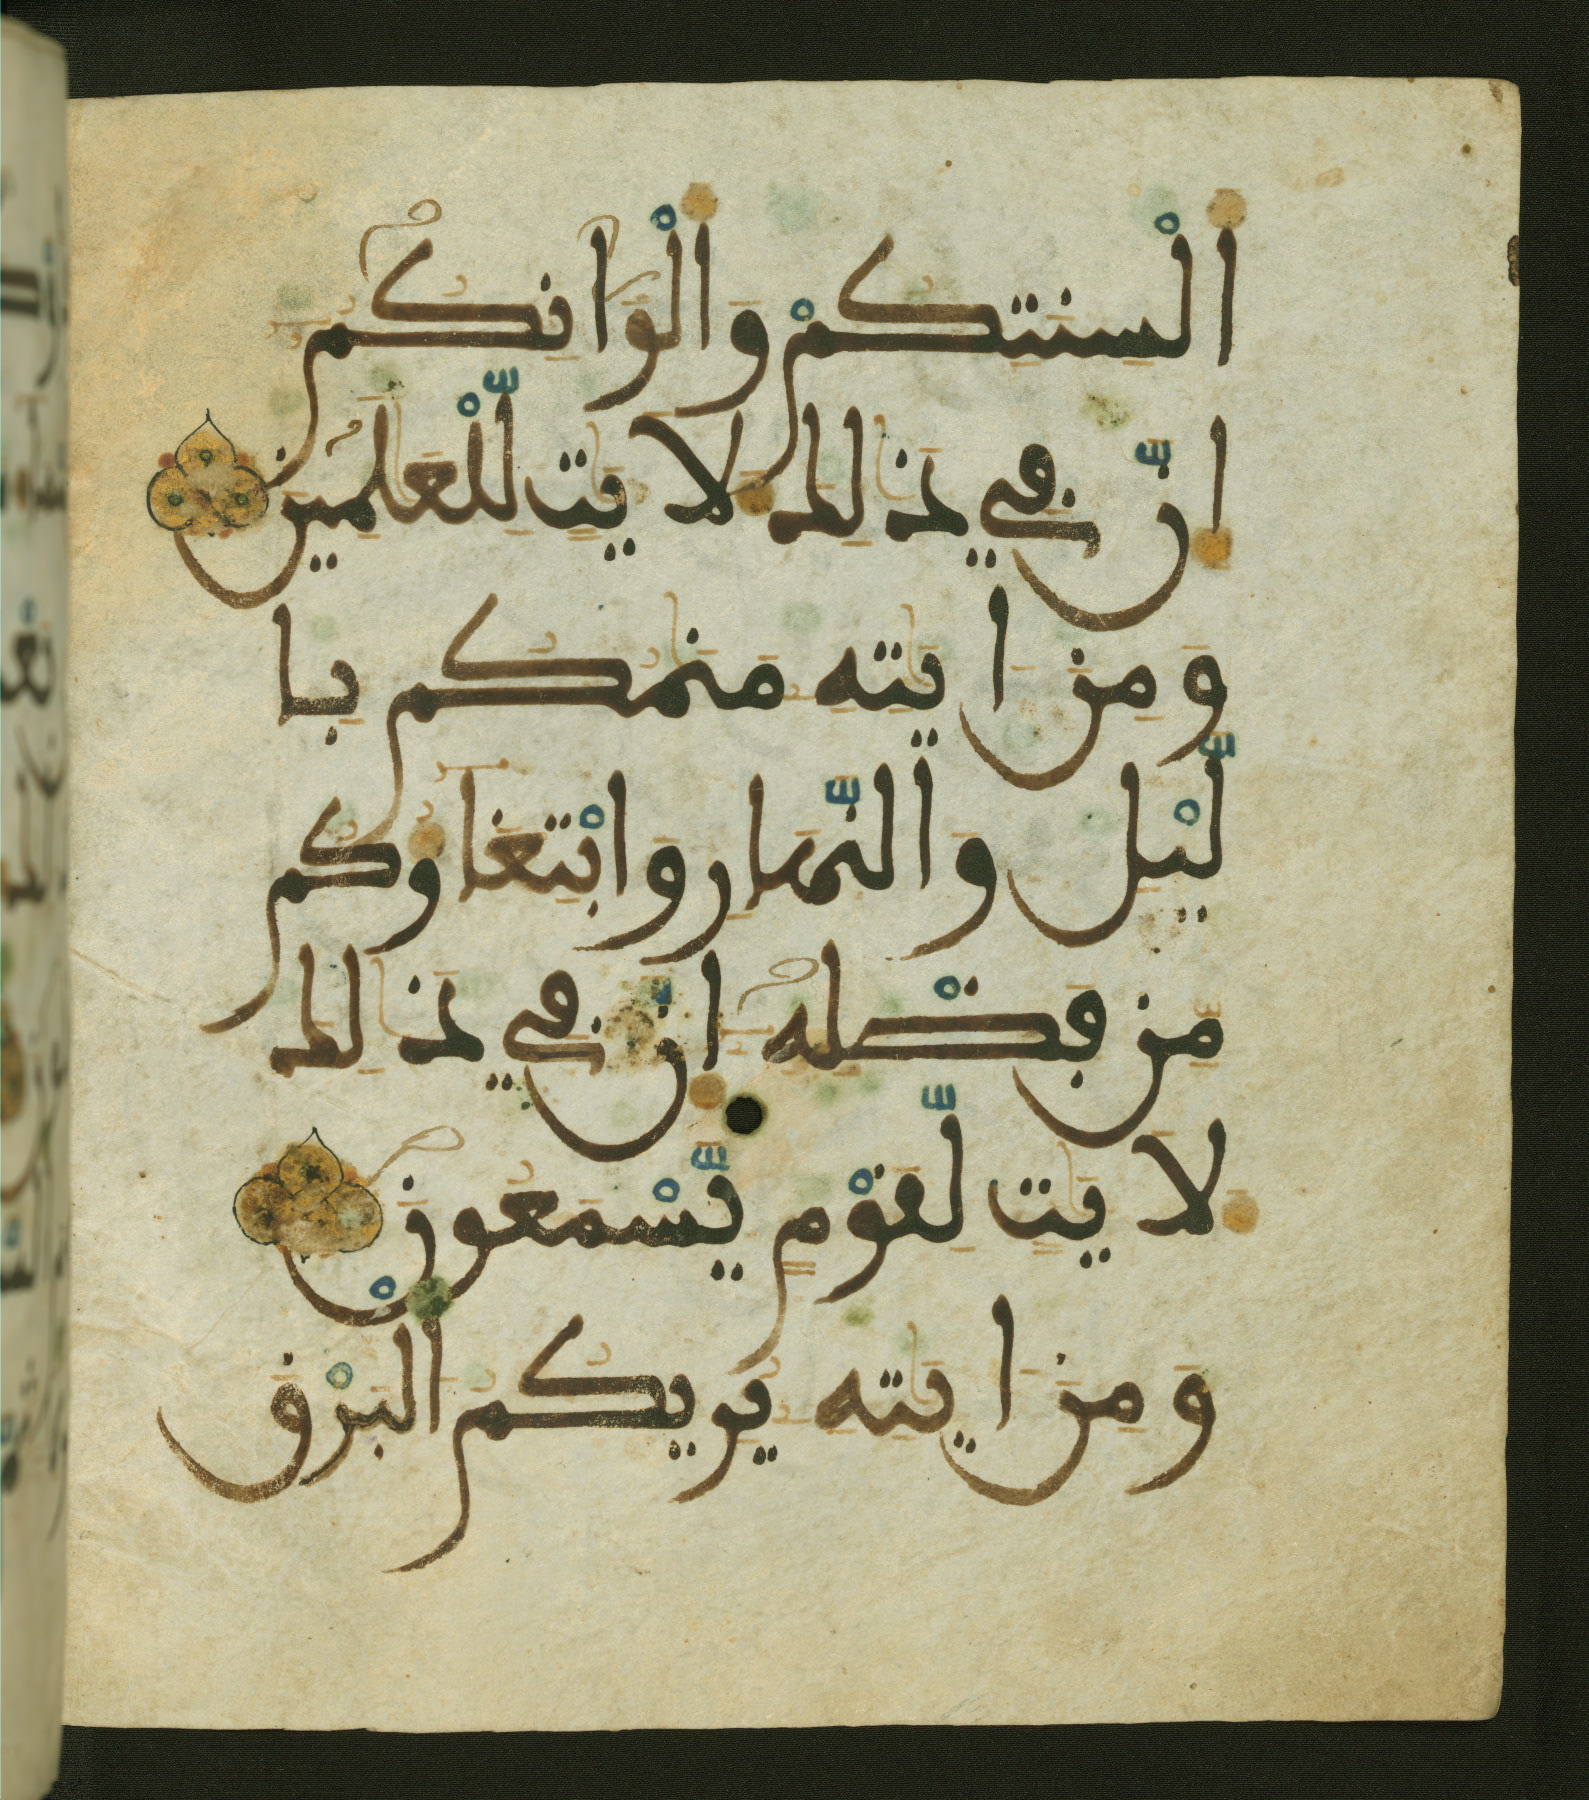 أَلْسِنَتِكُمْ وَأَلْوَانِكُمُۥ
إِنَّ فِي ذَالِكَ لَأَيَٰتٖ لِّلْعَٰلَمِينَ
وَمِنَ ايَٰتِهِۦ مَنَامُكُم بِا
لَّيْلِ وَالنَّهَارِ وَابْتِغَاؤُكُم
مِّن فَضْلِهِۦٓ إِنَّ فِي ذَالِكَ
لَأَيَٰتٖ لِّقَوْمٖ يَّسْمَعُونَ
وَمِنَ ايَٰتِهِۦ يُرِيكُمُ الْبَرْقَ